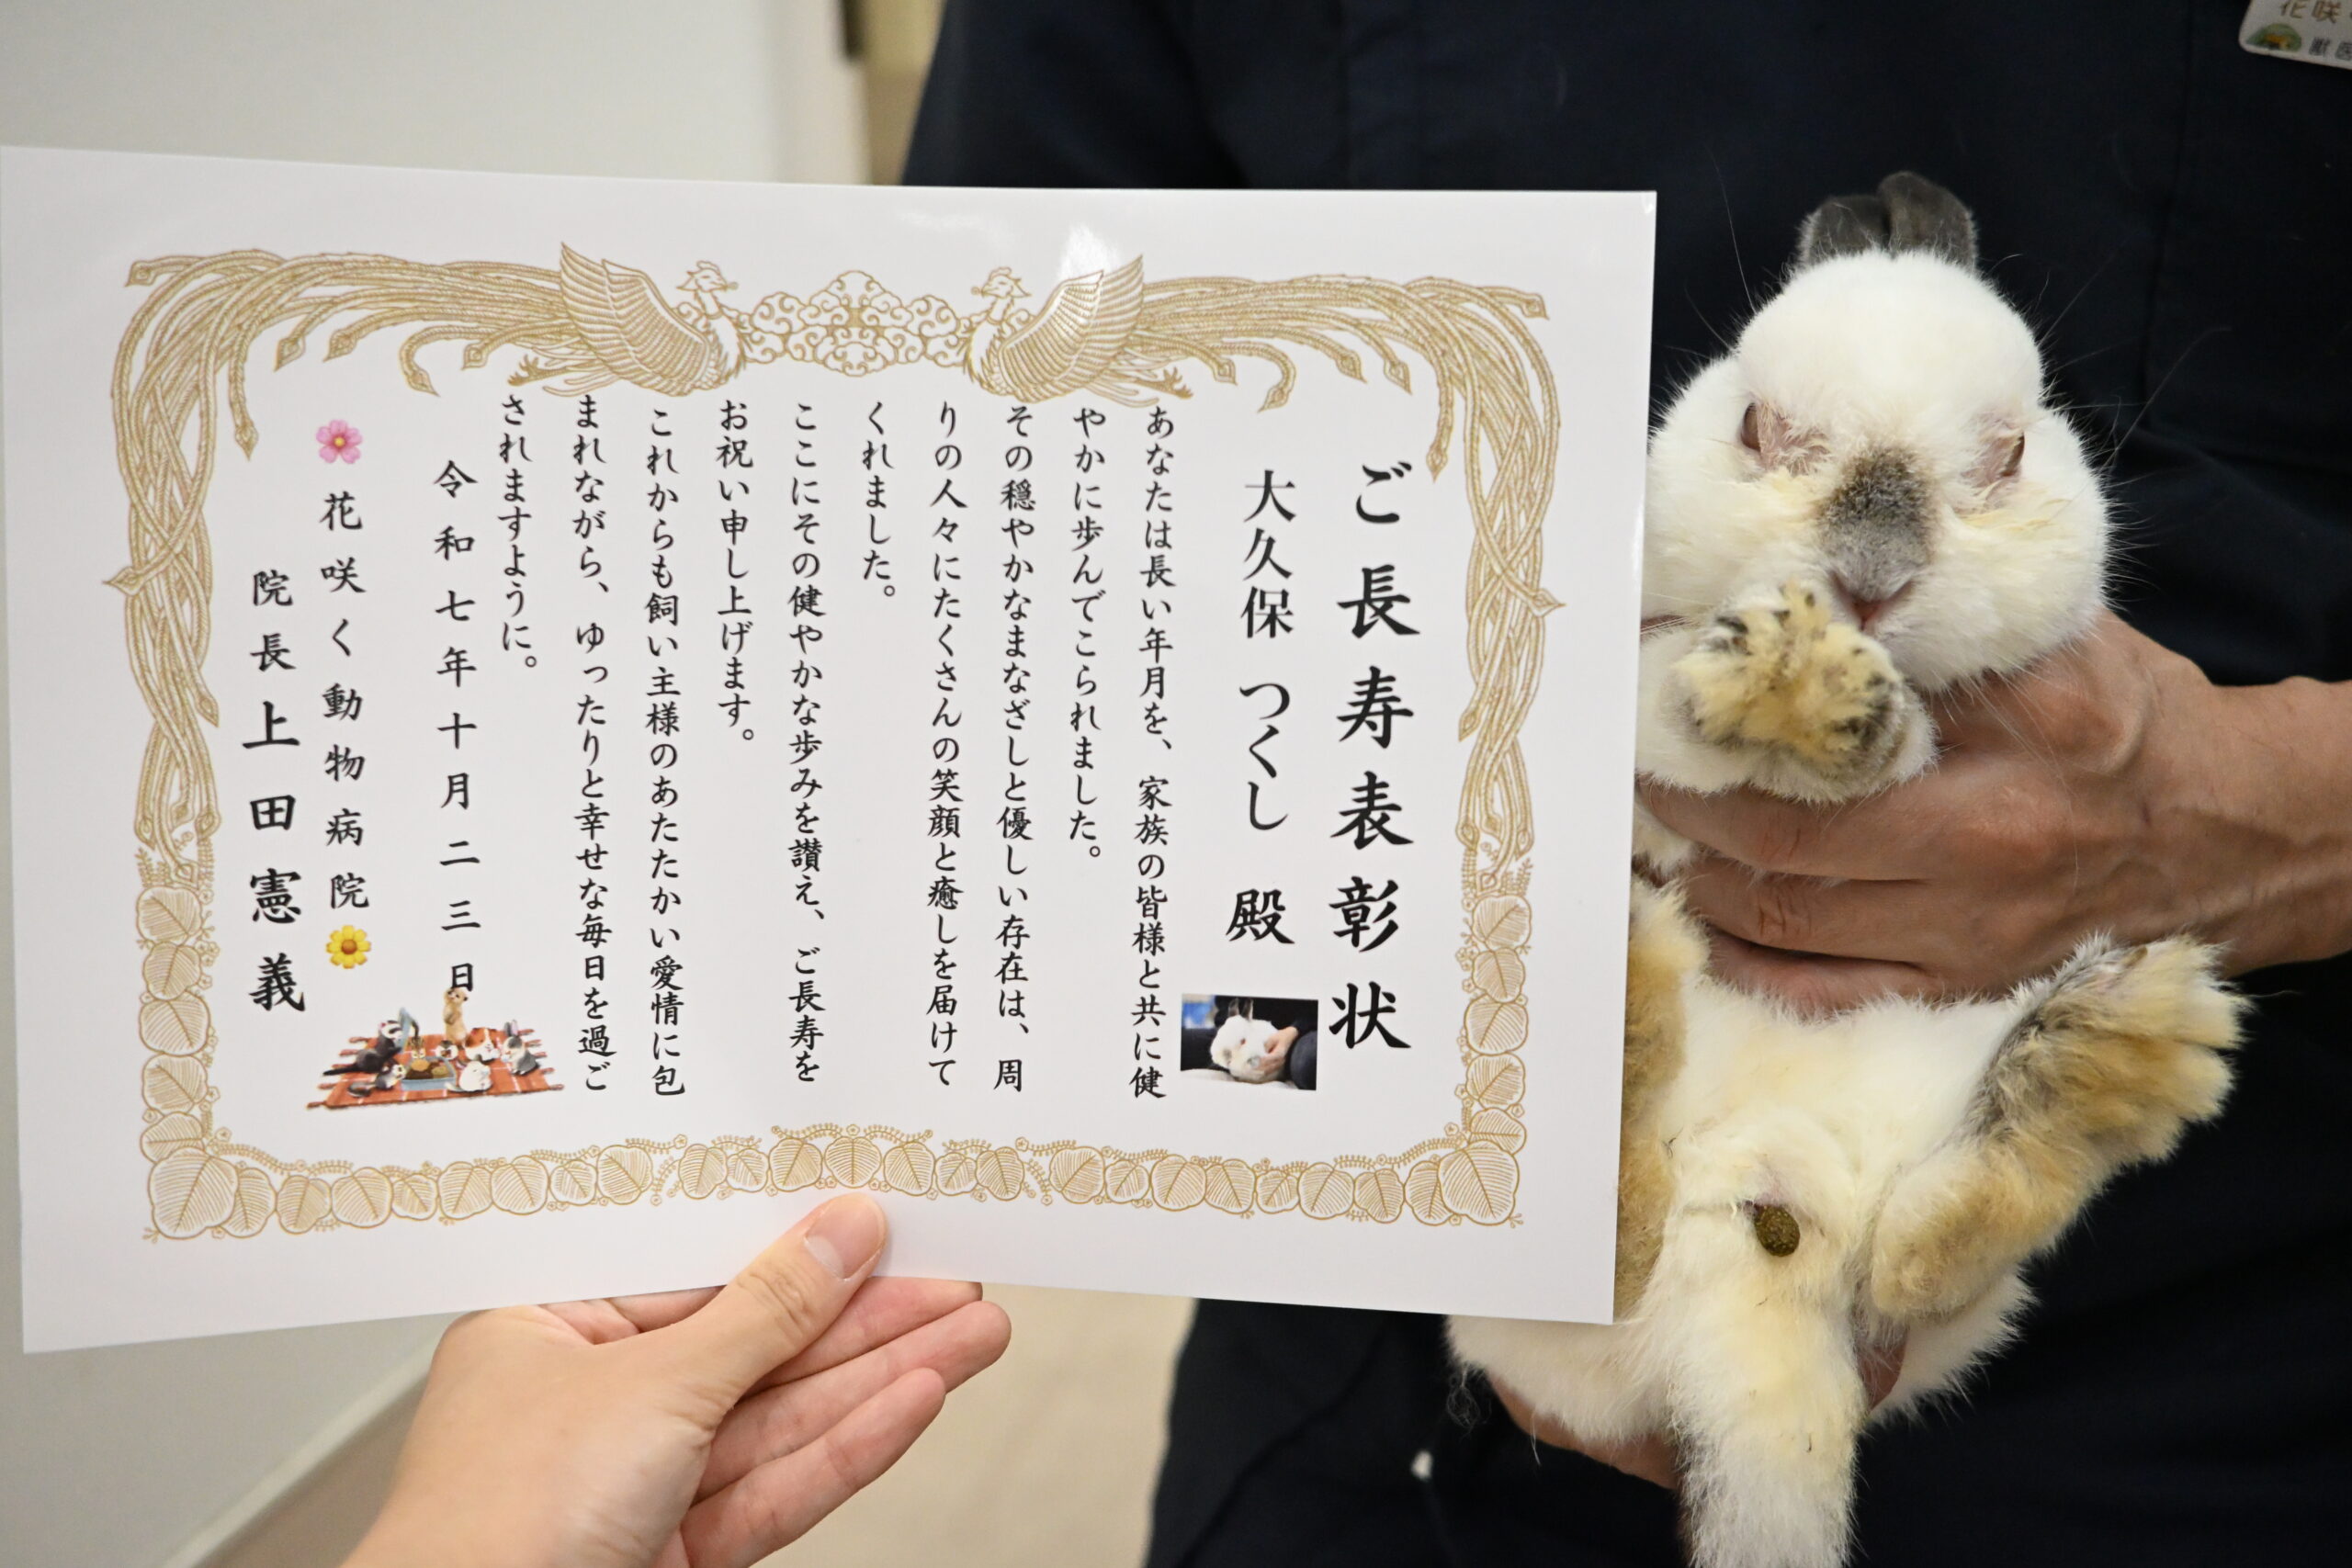 ご長寿表彰状
大久保 つくし 殿
あなたは長い年月を、家族の皆様と共に健
やかに歩んでこられました。
その穏やかなまなざしと優しい存在は、周
りの人々にたくさんの笑顔と癒しを届けて
くれました。
ここにその健やかな歩みを讃え、ご長寿を
お祝い申し上げます。
これからも飼い主様のあたたかい愛情に包
まれながら、ゆったりと幸せな毎日を過ご
されますように。
令和七年十月二三日
花咲く動物病院
院長 上田憲義
花咲
獣医